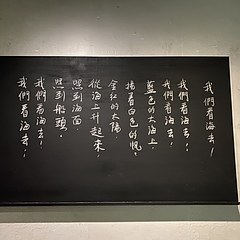 我們看海去！
我們看海去！
我們看海去！
藍色的大海上，
揚著白色的帆，
金紅的太陽，
從海上升起來，
照到海面，
照到船頭。
我們看海去！
我們看海去！